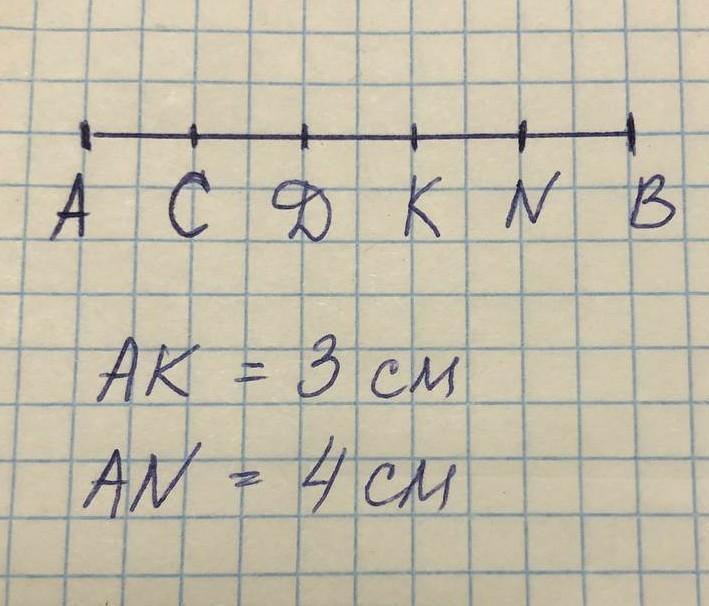 A C D K N B
AK = 3 см
AN = 4 см